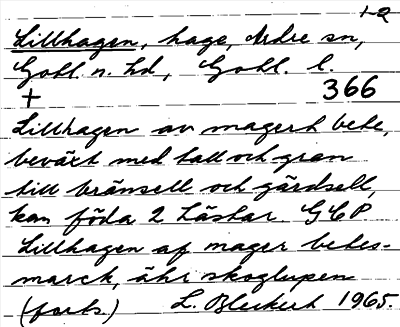 1-2
Lillhagen, hage, Ardre sn,
Gotl. n. hd, Gotl. l.
+ 366
Lillhagen av magert bete,
beväxt med tall och gran
till bränsell och gärdsell,
kan föda 2 hästar GCP
Lillhagen af mager betes-
marck, ähr skoglupen
(forts.) L. Bleckert 1965.